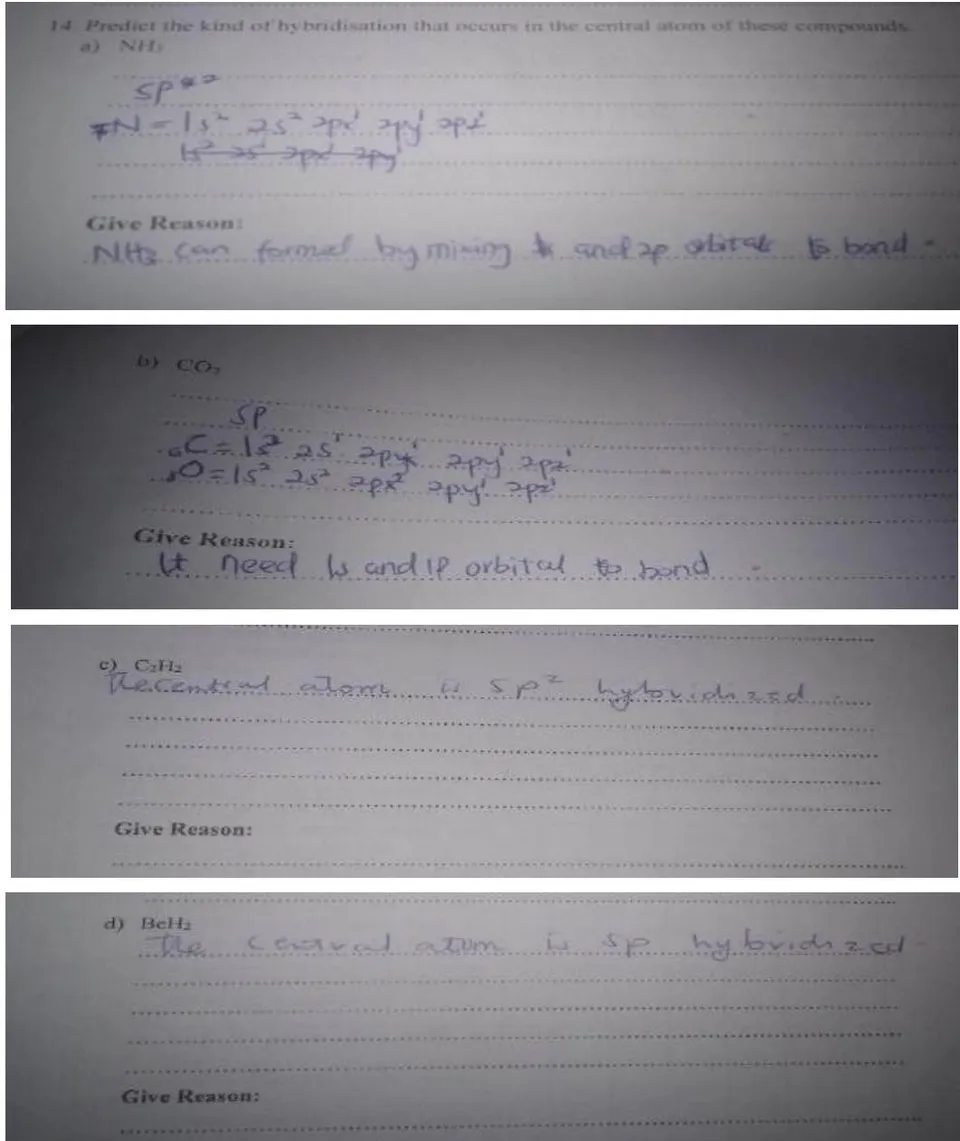 14. Predict the kind of hybridisation that occurs in the central atom of these compounds.
a) NH₃
sp
N = 1s² 2s² 2px¹ 2py¹ 2pz¹
1s² 2s 2px¹ 2py¹
Give Reason:
NH3 can formed by mixing and 2p orbitals to bond
b) CO₂
SP
₆C = 1s² 2s¹ 2px¹ 2py¹ 2pz¹
₈O = 1s² 2s² 2px² 2py¹ 2pz¹
Give Reason:
It need 1s and 1p orbital to bond
c) C₂H₂
The central atom is sp² hybridized
Give Reason:
d) BeH₂
The central atom is sp hybridized
Give Reason: